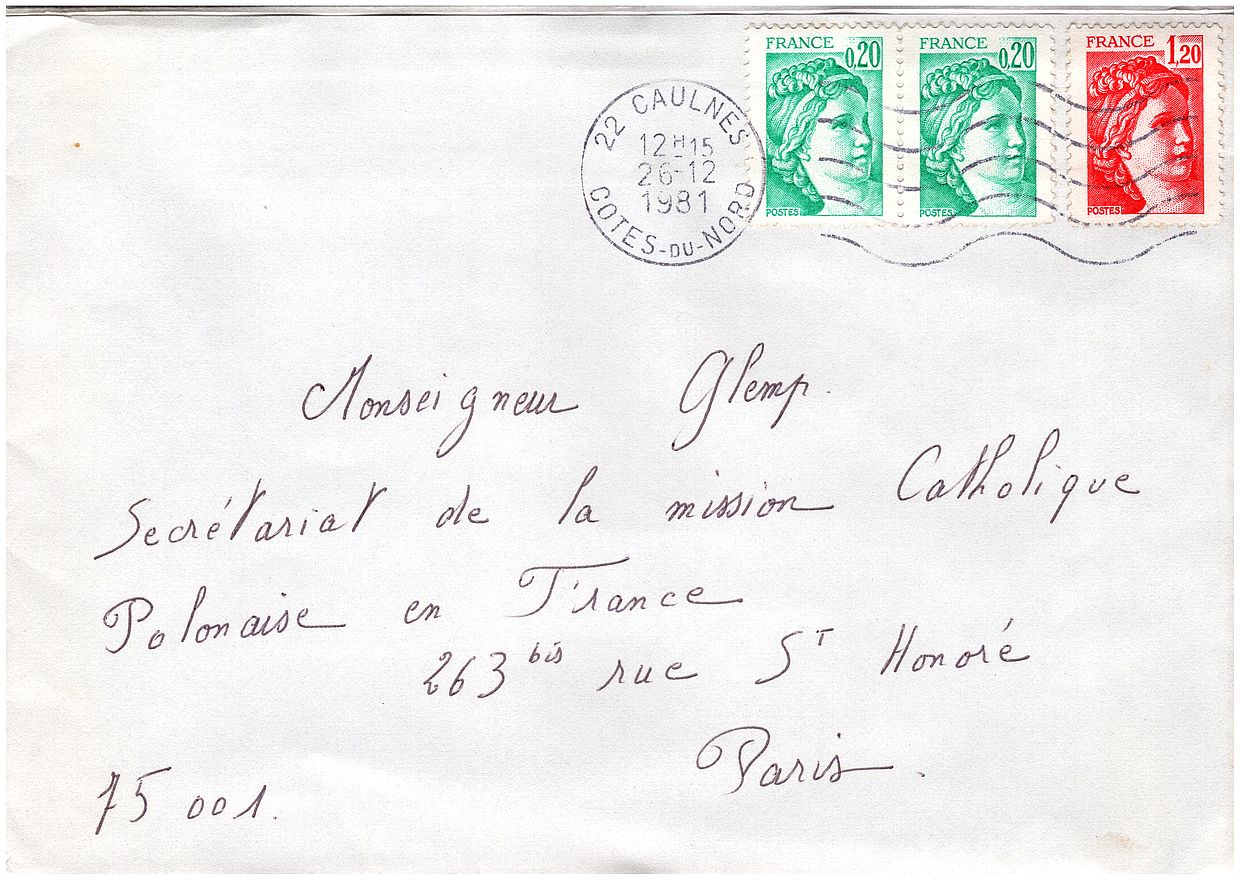 FRANCE 0,20
POSTES
FRANCE 0,20
POSTES
FRANCE 1,20
POSTES
22 CAULNES
12H15
26-12
1981
COTES-DU-NORD
Monseigneur Glemp.
Secrétariat de la mission Catholique
Polonaise en France
263 bis rue ST Honoré
Paris.
75 001.